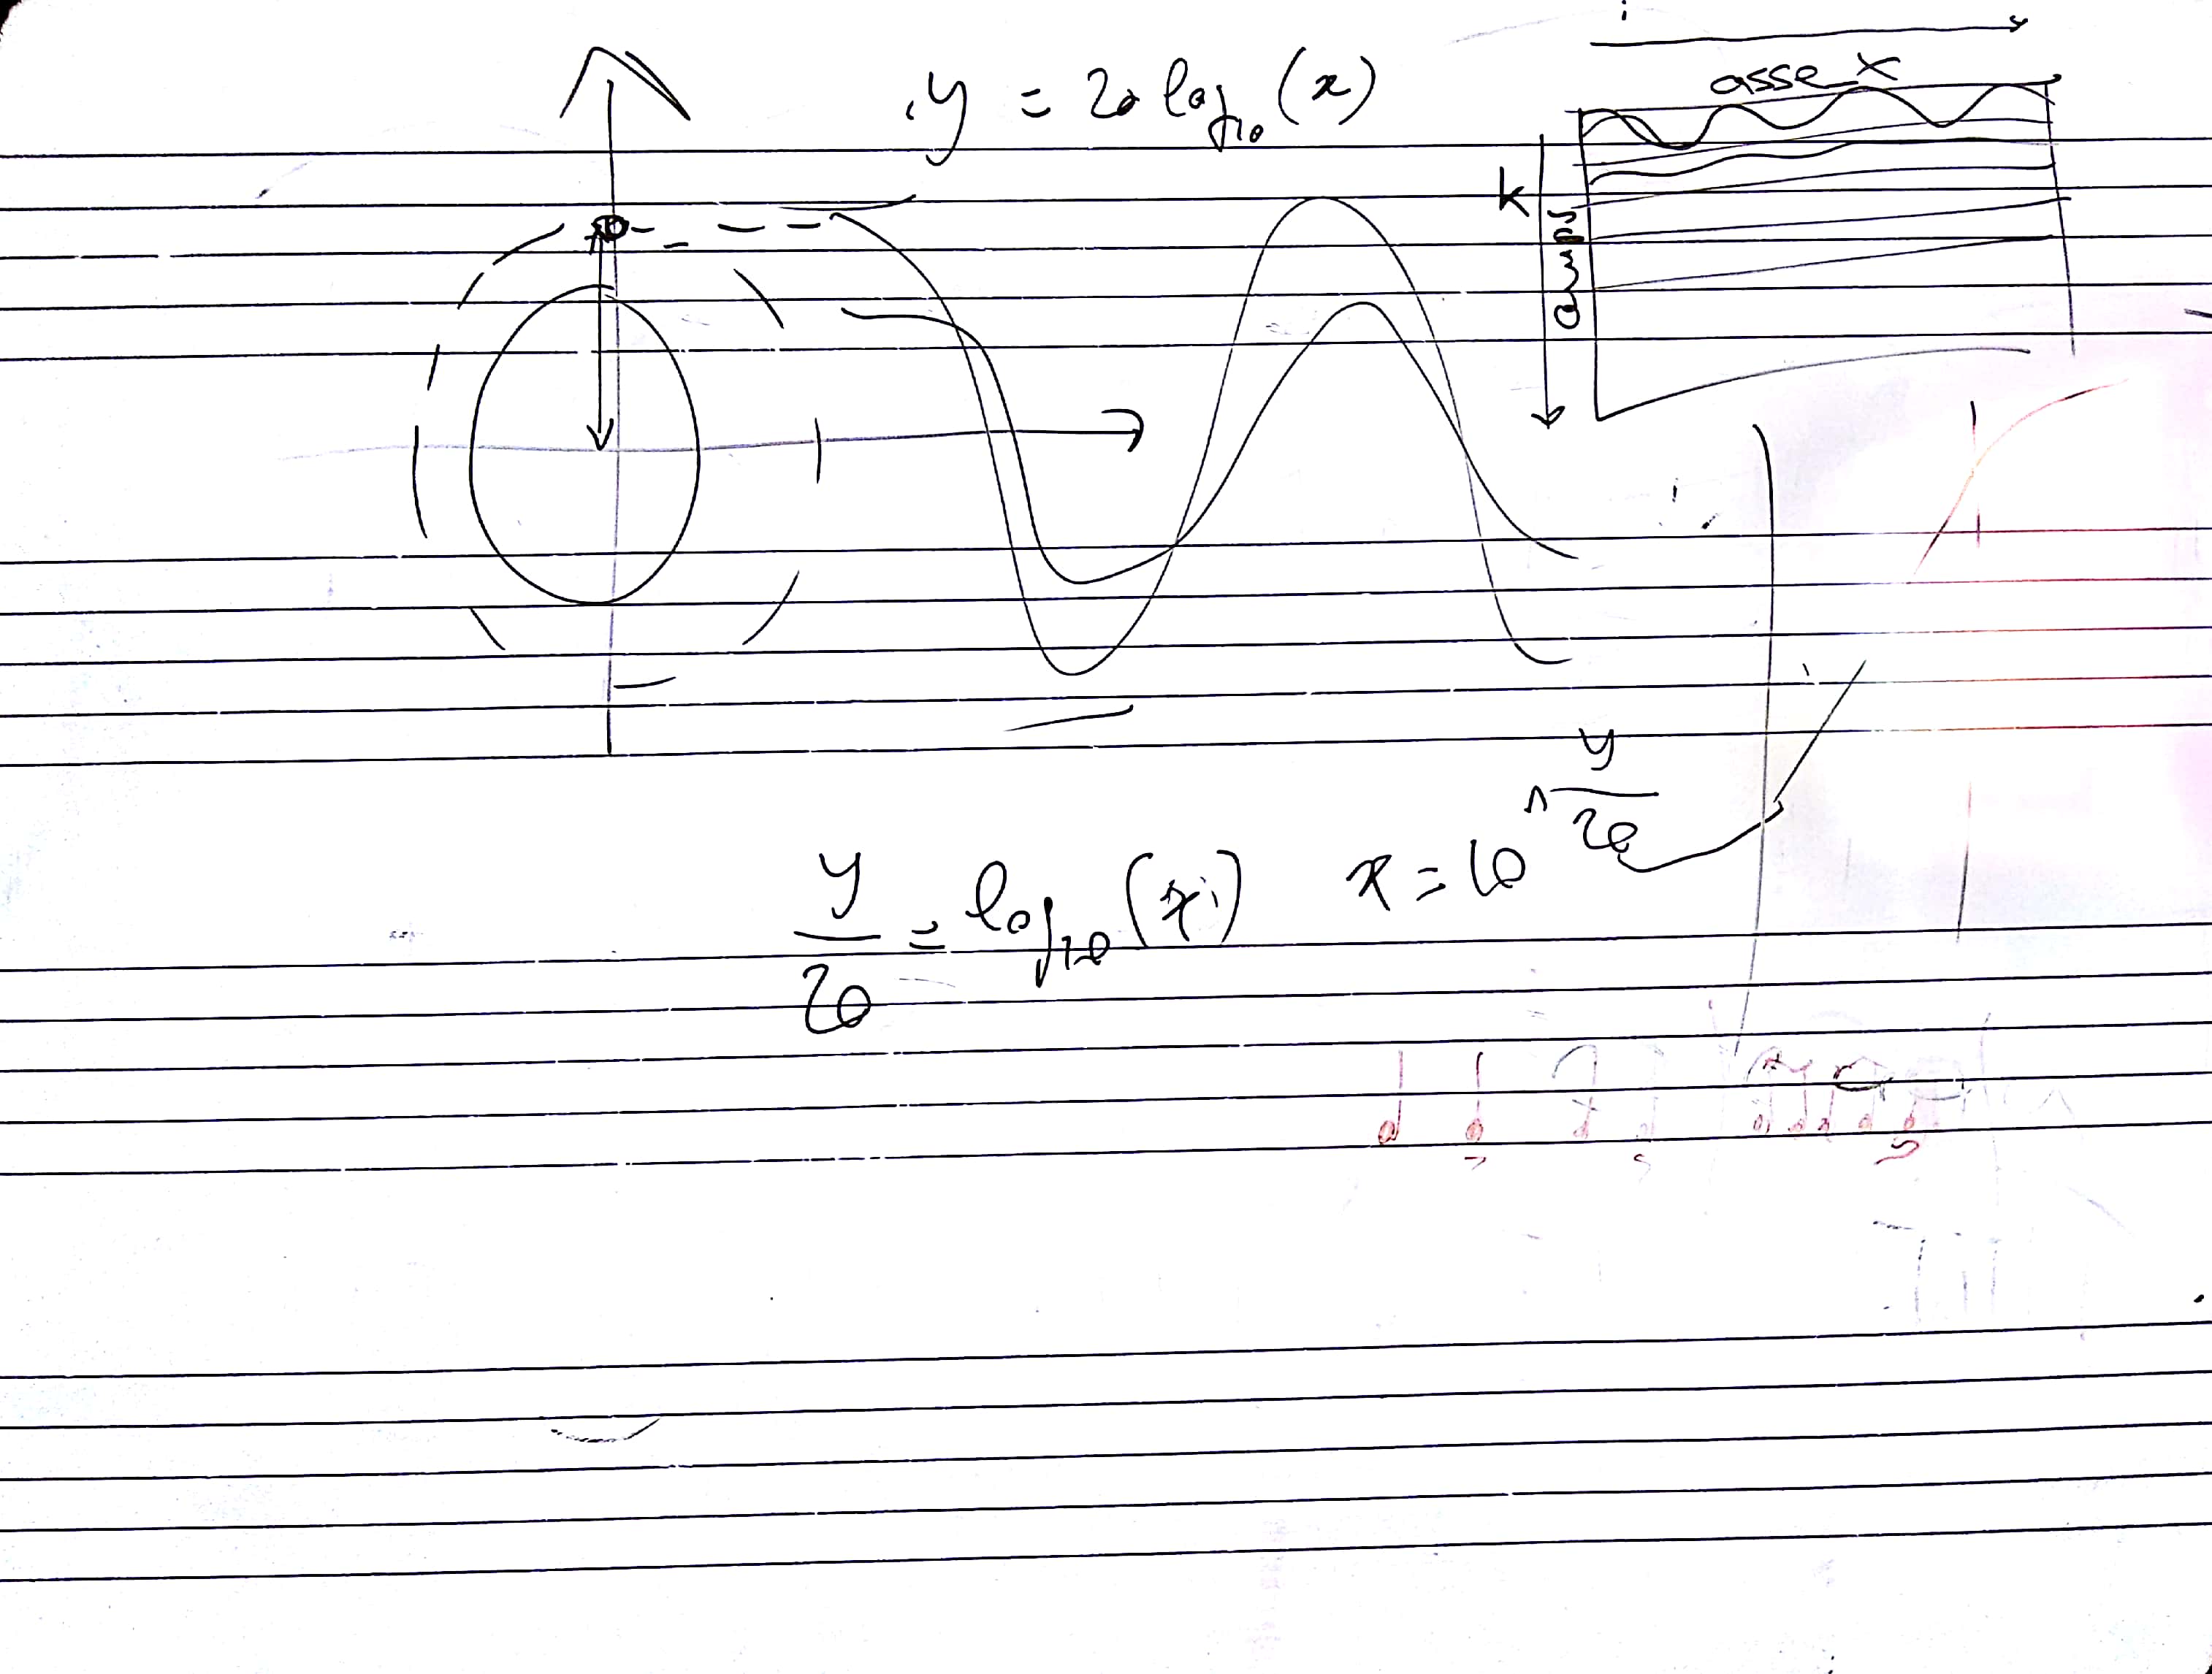 y = 20 log10 (x)
i
asse x
k
amps
y/20 = log10 (x)
x = 10^y/20